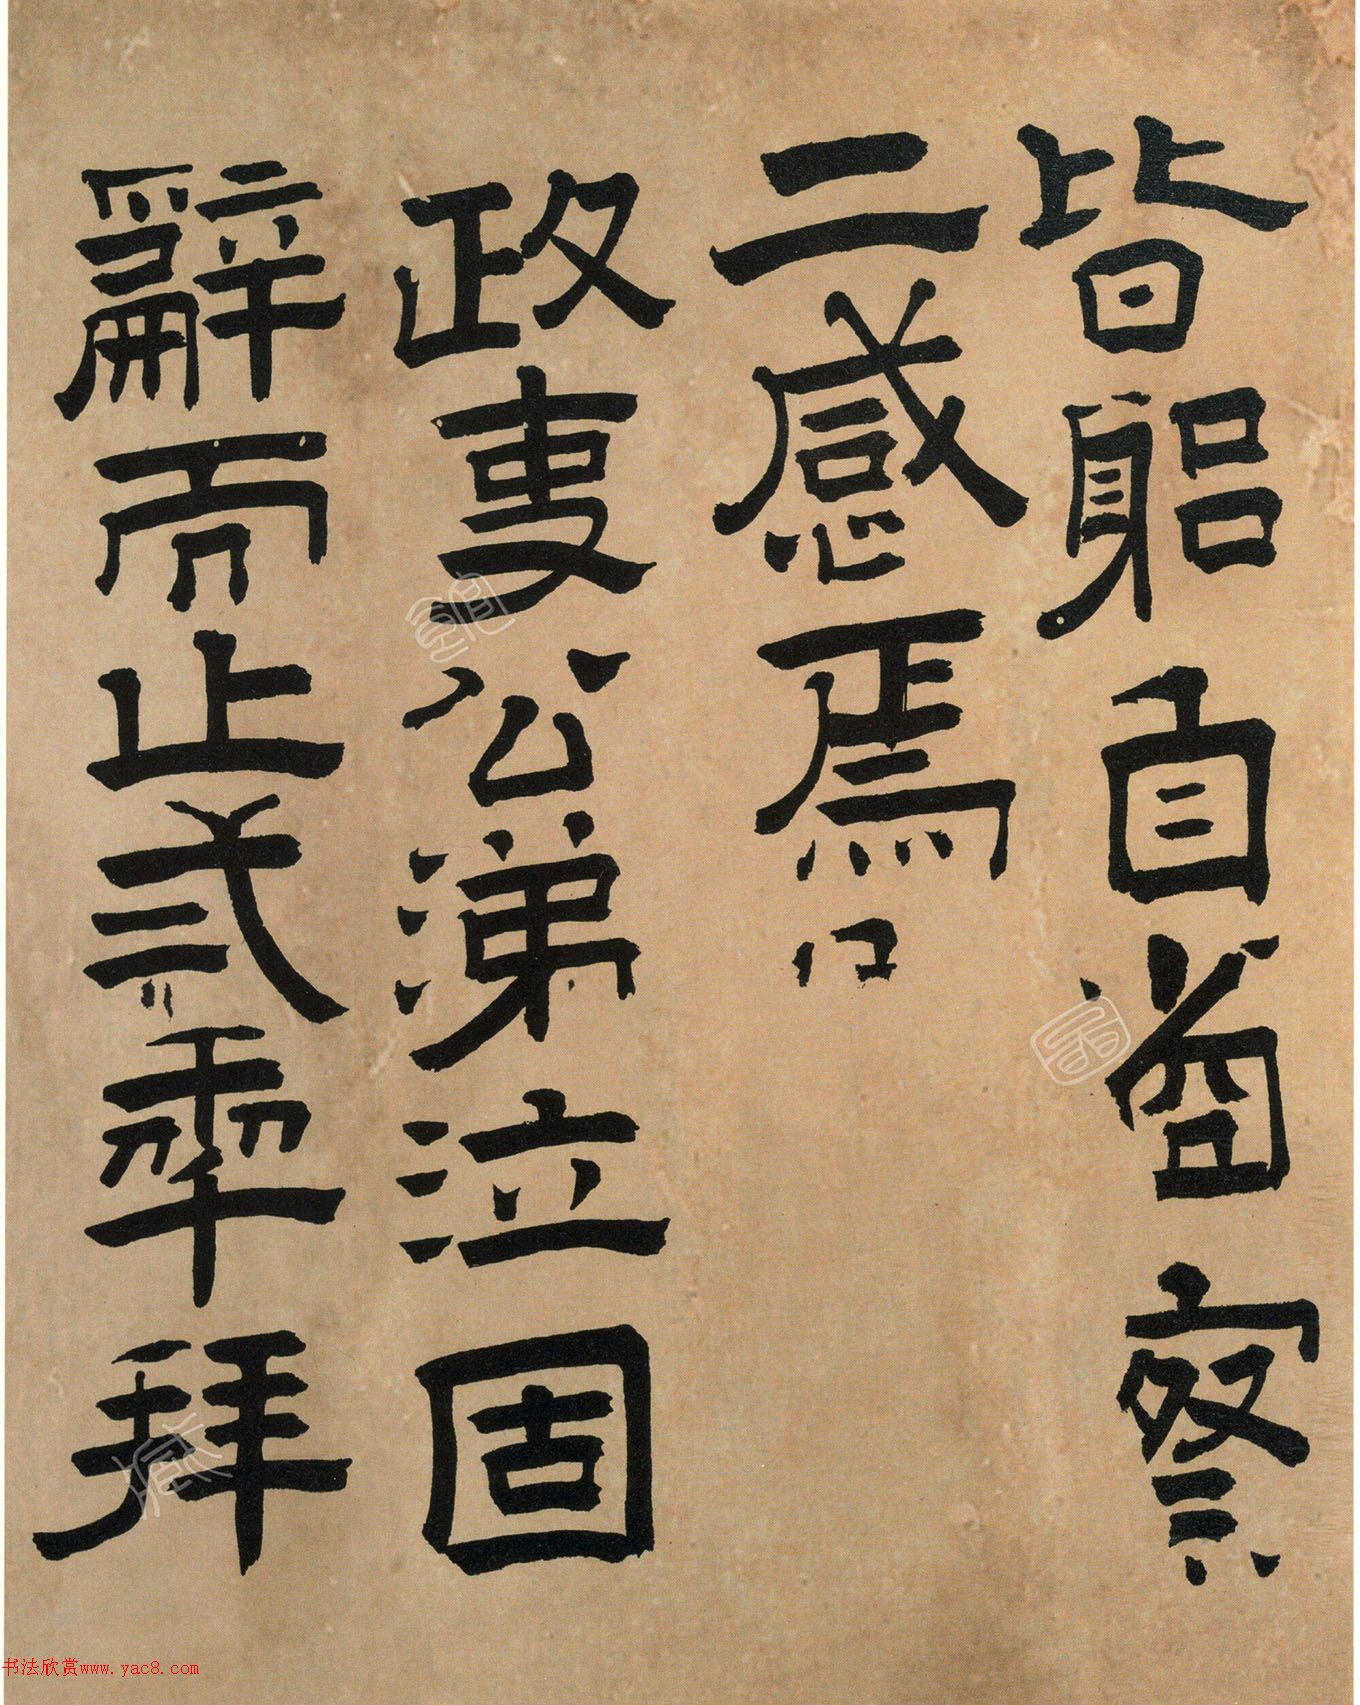 皆躬自省察
二感焉
政事公涕泣固
辭而止弍拜
书法欣赏www.yac8.com